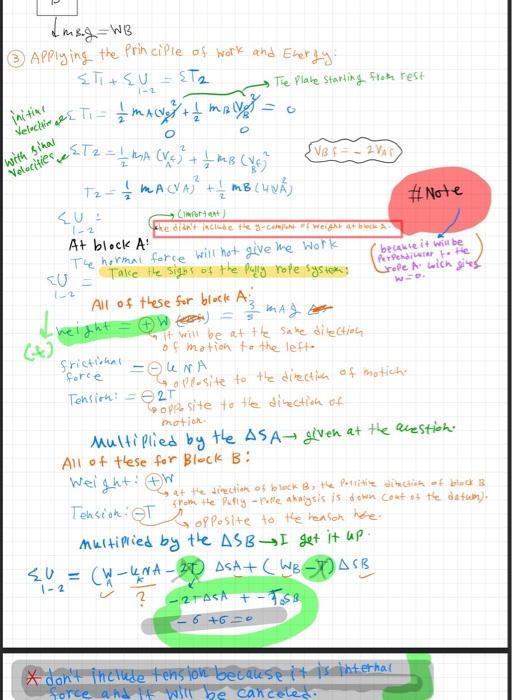 ↓ mB.g = WB
③ Applying the Principle of Work and Energy:
ΣT1 + ΣU1-2 = ΣT2
→ The Plate Starting from rest
initial velocities
ΣT1 = 1/2 mA(VA)² + 1/2 mB(VB)² = 0
0 0
with final velocities
ΣT2 = 1/2 mA (VAf)² + 1/2 mB (VBf)²
VBf = -2VAf
T2 = 1/2 mA (VA)² + 1/2 mB (4VA²)
#Note
ΣU1-2 :
→ (Important)
he didn't include the y-component of weight at block A.
At block A:
The normal force will not give me work
(because it will be Perpendicular to the rope A. wich gives W=0.)
ΣU1-2 =
Take the Signs of the Pully rope System:
All of these for block A:
(+)
weight = ⊕W = 3/5 mA g
↳ it will be at the same direction
of motion to the left.
frictional force = ⊖ uNA
↳ opposite to the direction of motion.
Tension: = ⊖2T
↳ opposite to the direction of
motion.
Multiplied by the ΔSA → given at the question.
All of these for Block B:
Weight: ⊕W
↳ at the direction of block B, the Positive direction of block B
from the Pully-rope analysis is down (out of the datum).
Tension: ⊖T
↳ opposite to the reason here.
Multiplied by the ΔSB → I get it up.
ΣU1-2 = (W - ukNA - 2T) ΔSA + (WB - T) ΔSB
?
-2TΔSA + -TΔSB
-6 +6 = 0
* don't include tension because it is internal
force and it will be canceled.